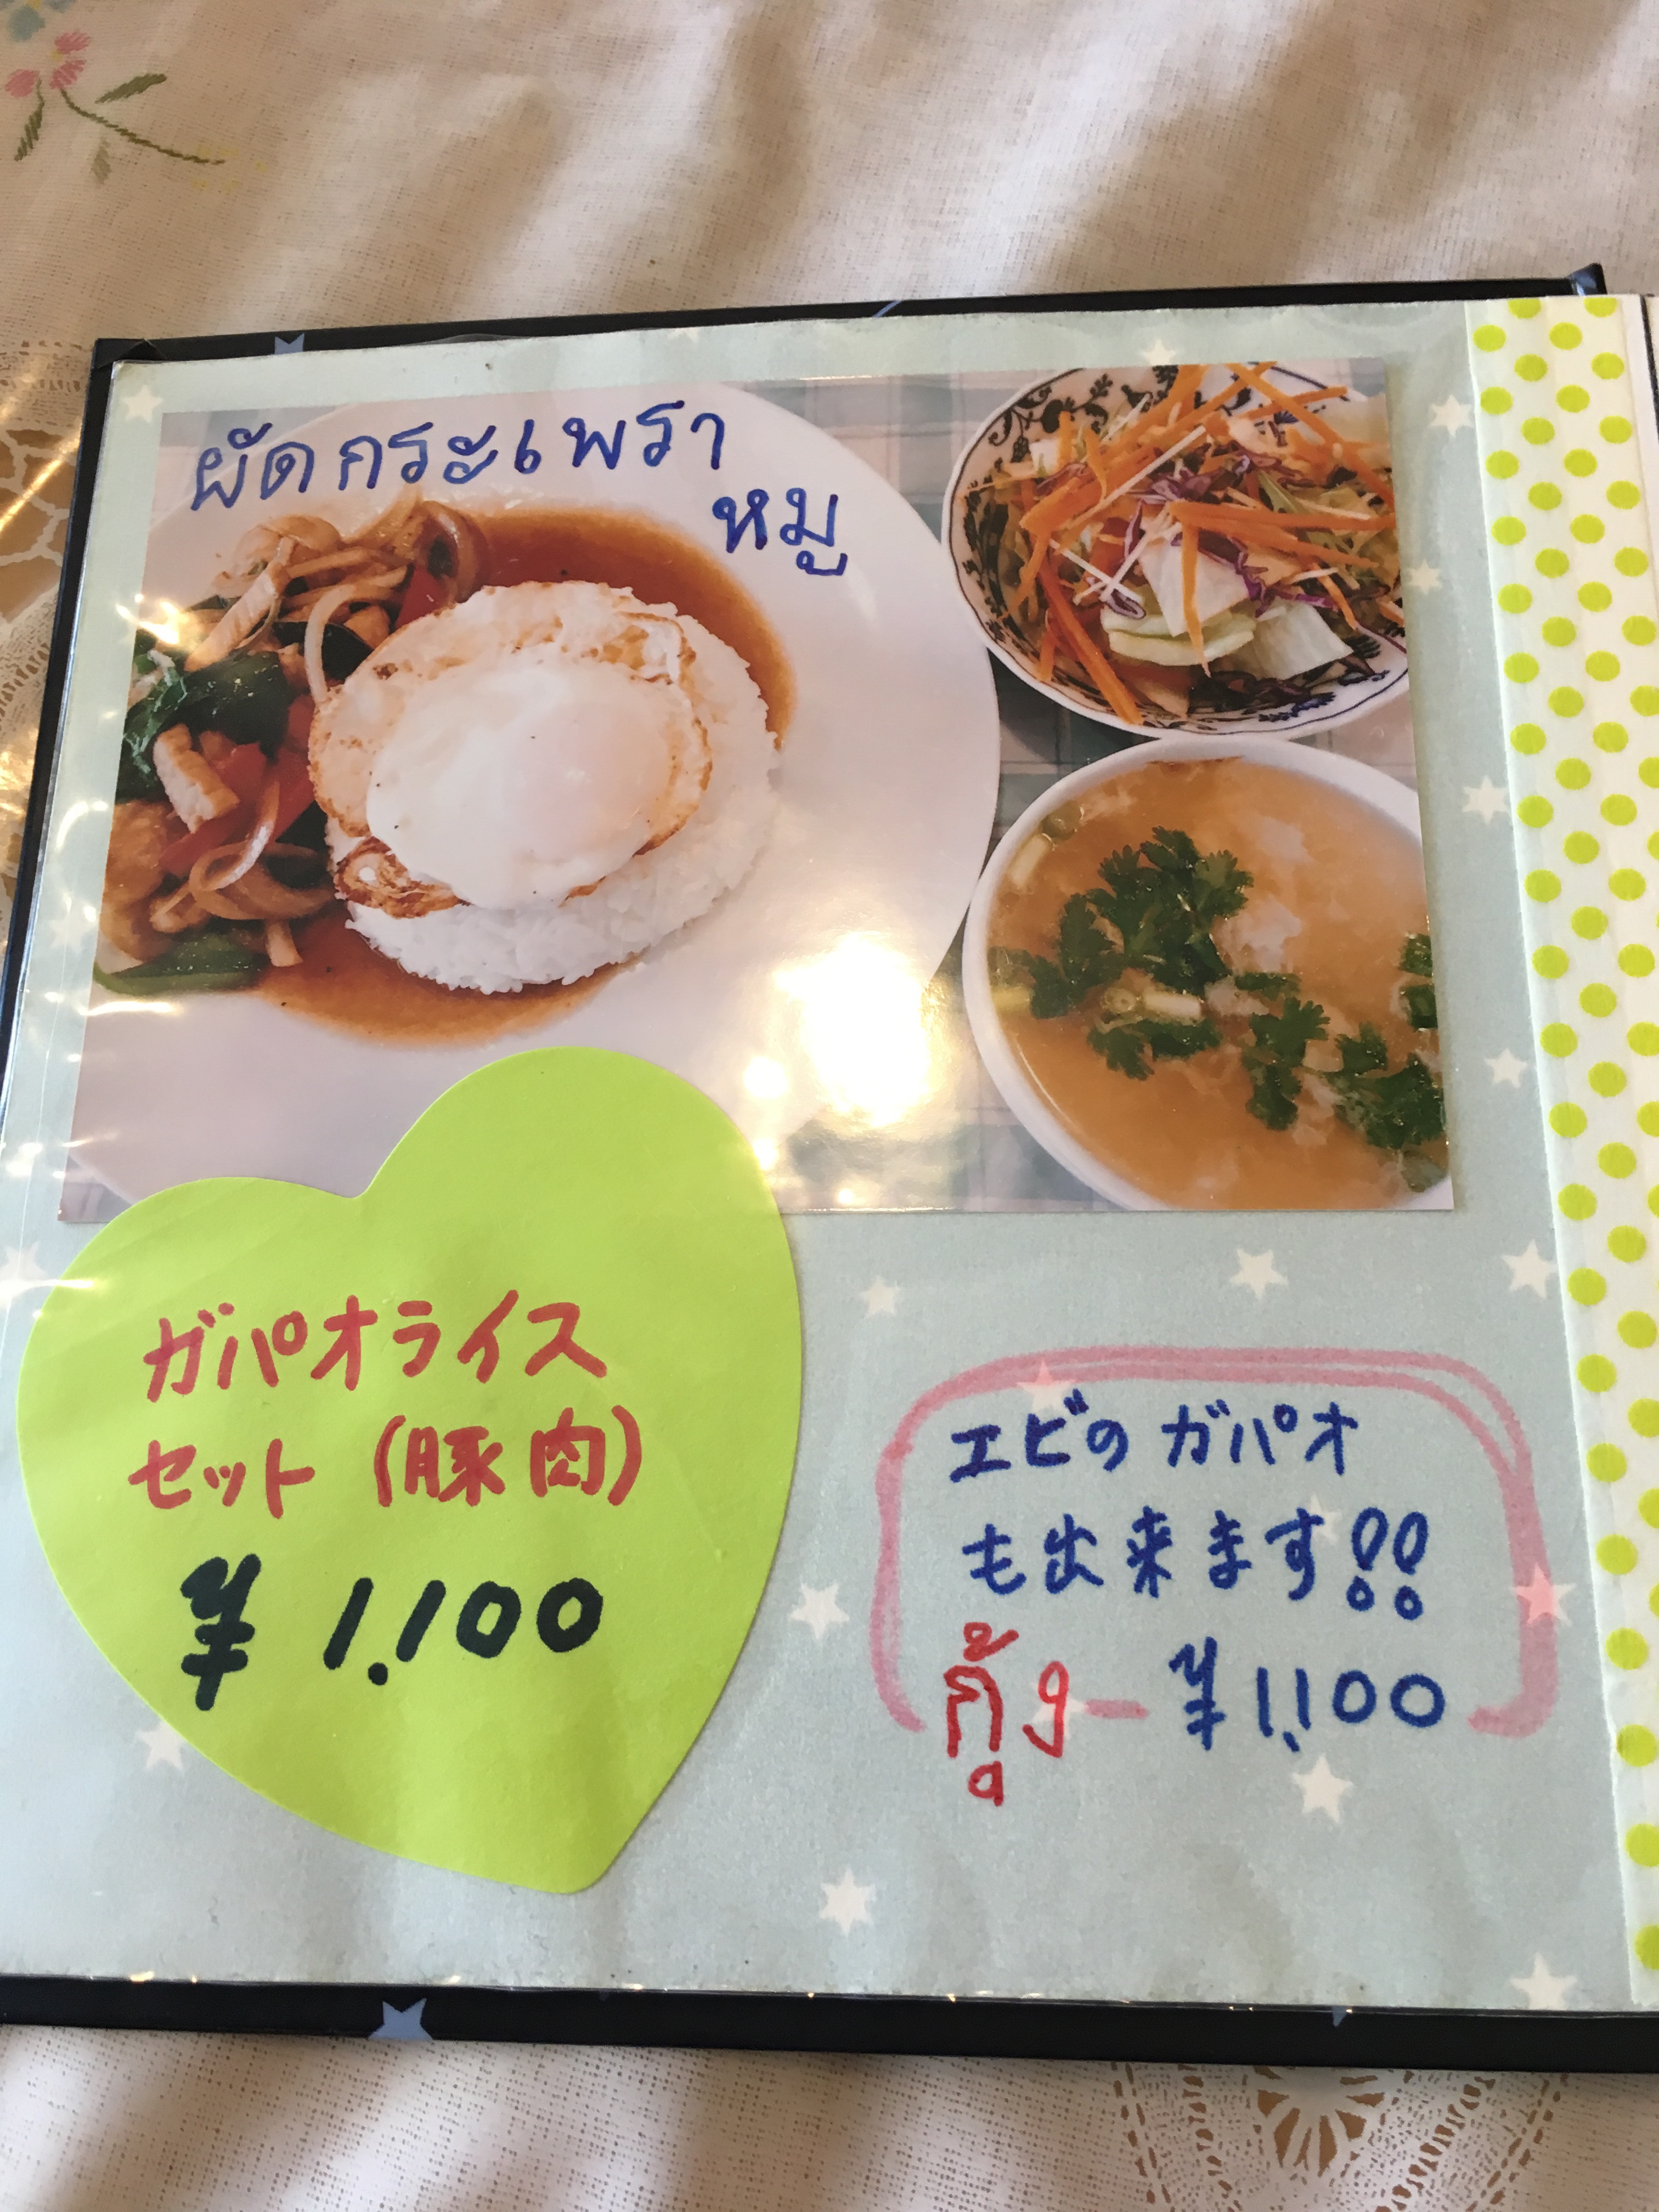 ผัดกระเพรา
หมู
ガパオライス
セット (豚肉)
¥ 1,100
エビの ガパオ
も出来ます!!
กุ้ง — ¥1,100